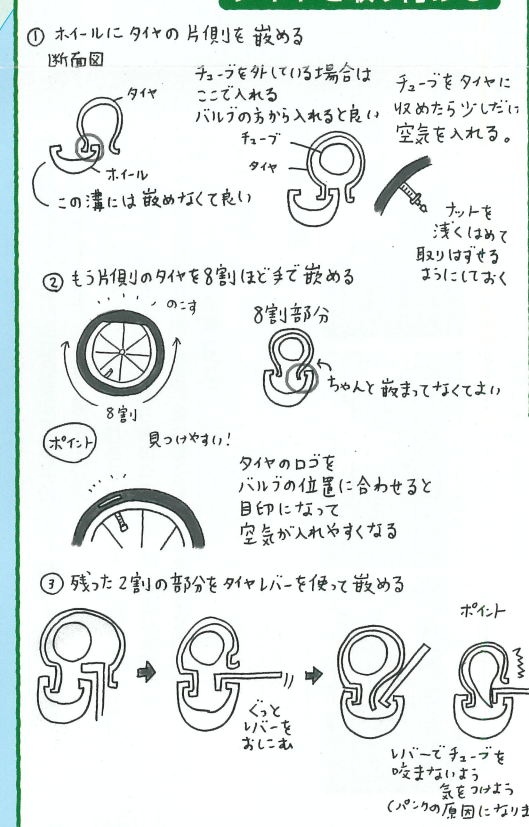 ① ホイールにタイヤの片側を嵌める
断面図
タイヤ
ホイール
この溝には嵌めなくて良い
チューブを外している場合は
ここで入れる
バルブの方から入れると良い
チューブ
タイヤ
チューブをタイヤに
収めたら少しだけ
空気を入れる。
ナットを
浅くはめて
取りはずせる
ようにしておく
② もう片側のタイヤを8割ほど手で嵌める
のこす
8割
8割部分
ちゃんと嵌まってなくてよい
ポイント
見つけやすい!
タイヤのロゴを
バルブの位置に合わせると
目印になって
空気が入れやすくなる
③ 残った2割の部分をタイヤレバーを使って嵌める
ぐっと
レバーを
おしこむ
ポイント
レバーでチューブを
咬まないよう
気をつけよう
(パンクの原因になりま